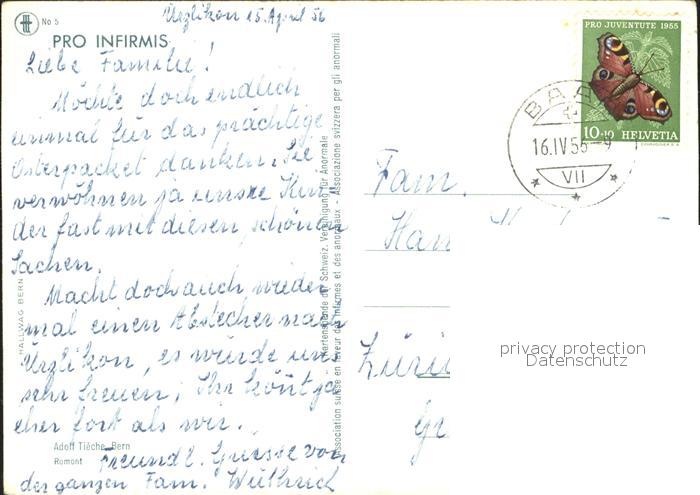 No 5
PRO INFIRMIS
Ürzlikon 15. April 56
Liebe Familie!
Möchte doch endlich
einmal für das prächtige
Osterpacket danken. Sie
verwöhnen ja unsre Kin
der fast mit diesen schönen
Sachen.
Macht doch auch wieder
mal einen Abstecher nach
Ürzlikon, es würde uns
sehr freuen, Ihr könnt ja
eher fort als wir.
Freundl. Grüsse von
der ganzen Fam. Wüthrich
Adolf Tièche, Bern
Romont
HALLWAG BERN
Kartenspende der Schweiz. Vereinigung für Anormale
Association suisse en faveur des infirmes et des anormaux - Associazione svizzera per gli anormali
PRO JUVENTUTE 1955
10+10 HELVETIA
BAAR
16.IV 56-9
VII
Fam.
privacy protection
Datenschutz